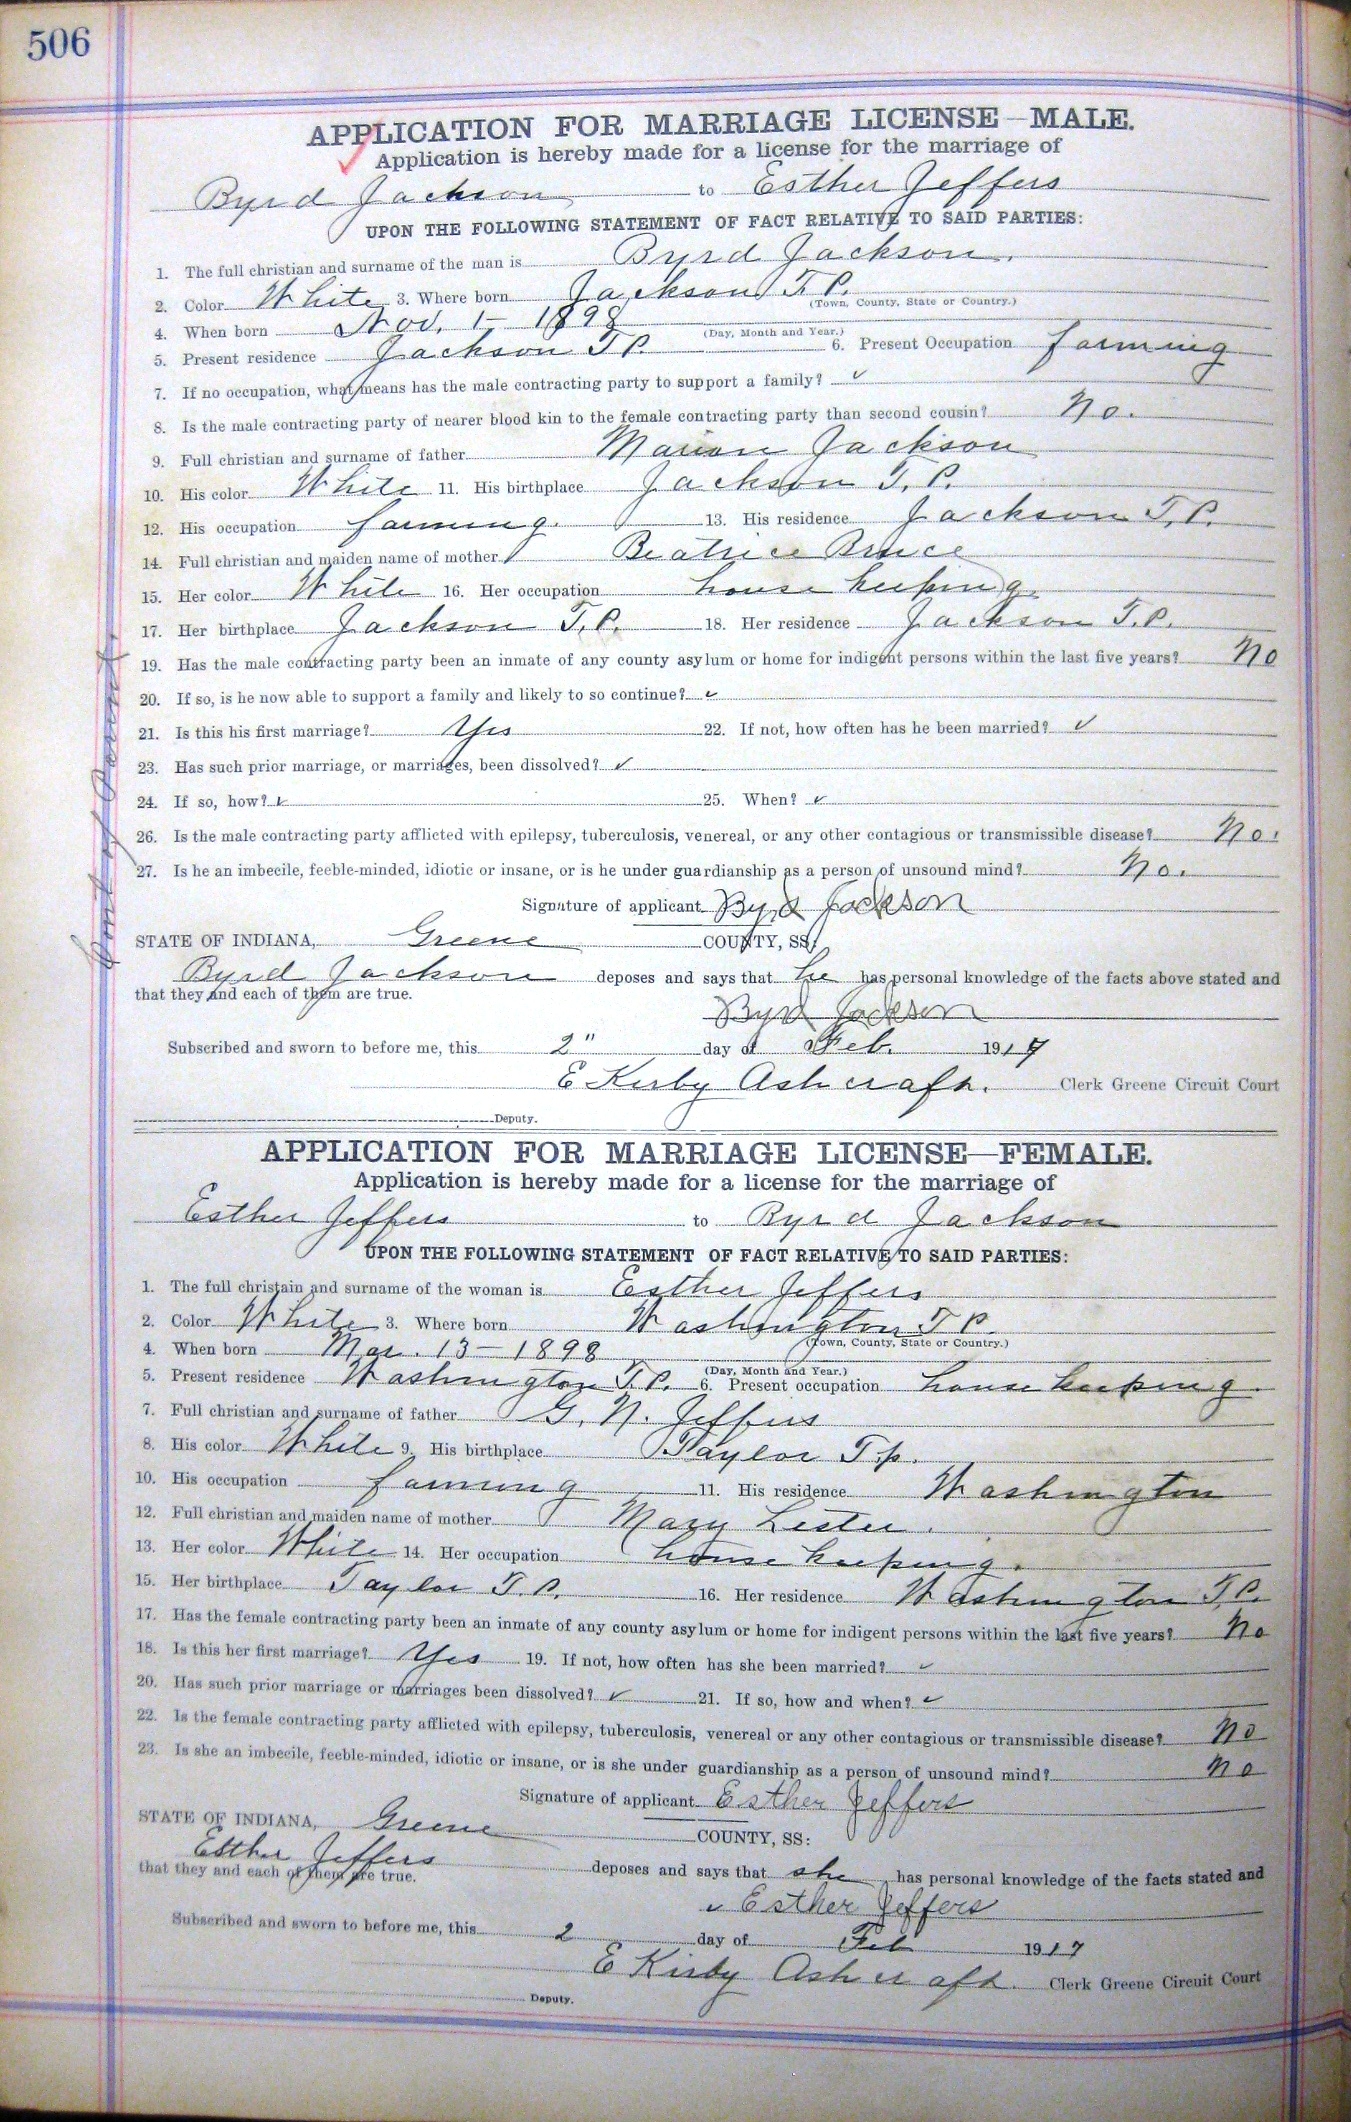 506
APPLICATION FOR MARRIAGE LICENSE—MALE.
Application is hereby made for a license for the marriage of
Byrd Jackson to Esther Jeffers
UPON THE FOLLOWING STATEMENT OF FACT RELATIVE TO SAID PARTIES:
1. The full christian and surname of the man is Byrd Jackson.
2. Color White 3. Where born Jackson T.P.
(Town, County, State or Country.)
4. When born Nov. 1 - 1898
(Day, Month and Year.)
5. Present residence Jackson T P. 6. Present Occupation farming
7. If no occupation, what means has the male contracting party to support a family? ✓
8. Is the male contracting party of nearer blood kin to the female contracting party than second cousin? No.
9. Full christian and surname of father Marion Jackson
10. His color White 11. His birthplace Jackson T. P.
12. His occupation farming. 13. His residence Jackson T. P.
14. Full christian and maiden name of mother Beatrice Bruce
15. Her color White 16. Her occupation house keeping.
17. Her birthplace Jackson T. P. 18. Her residence Jackson T. P.
19. Has the male contracting party been an inmate of any county asylum or home for indigent persons within the last five years? No
20. If so, is he now able to support a family and likely to so continue? ✓
21. Is this his first marriage? Yes 22. If not, how often has he been married? ✓
23. Has such prior marriage, or marriages, been dissolved? ✓
24. If so, how? ✓ 25. When? ✓
26. Is the male contracting party afflicted with epilepsy, tuberculosis, venereal, or any other contagious or transmissible disease? No.
27. Is he an imbecile, feeble-minded, idiotic or insane, or is he under guardianship as a person of unsound mind? No.
Signature of applicant Byrd Jackson
STATE OF INDIANA, Greene COUNTY, SS:
Byrd Jackson deposes and says that he has personal knowledge of the facts above stated and
that they and each of them are true.
Byrd Jackson
Subscribed and sworn to before me, this 2" day of Feb. 1917
E Kirby Ashcraft. Clerk Greene Circuit Court
Deputy.
APPLICATION FOR MARRIAGE LICENSE—FEMALE.
Application is hereby made for a license for the marriage of
Esther Jeffers to Byrd Jackson
UPON THE FOLLOWING STATEMENT OF FACT RELATIVE TO SAID PARTIES:
1. The full christain and surname of the woman is Esther Jeffers
2. Color White 3. Where born Washington T P.
(Town, County, State or Country.)
4. When born Mar. 13 - 1898
(Day, Month and Year.)
5. Present residence Washington T. P. 6. Present occupation house keeping.
7. Full christian and surname of father G. N. Jeffers
8. His color White 9. His birthplace Taylor T.p.
10. His occupation farming 11. His residence Washington
12. Full christian and maiden name of mother Mary Lester.
13. Her color White 14. Her occupation house keeping.
15. Her birthplace Taylor T. P. 16. Her residence Washington T. P.
17. Has the female contracting party been an inmate of any county asylum or home for indigent persons within the last five years? No
18. Is this her first marriage? Yes 19. If not, how often has she been married? ✓
20. Has such prior marriage or marriages been dissolved? ✓ 21. If so, how and when? ✓
22. Is the female contracting party afflicted with epilepsy, tuberculosis, venereal or any other contagious or transmissible disease? No
23. Is she an imbecile, feeble-minded, idiotic or insane, or is she under guardianship as a person of unsound mind? No
Signature of applicant Esther Jeffers
STATE OF INDIANA, Greene COUNTY, SS:
Esther Jeffers deposes and says that she has personal knowledge of the facts stated and
that they and each of them are true.
✓ Esther Jeffers
Subscribed and sworn to before me, this 2 day of Feb 1917
E Kirby Ashcraft. Clerk Greene Circuit Court
Deputy.